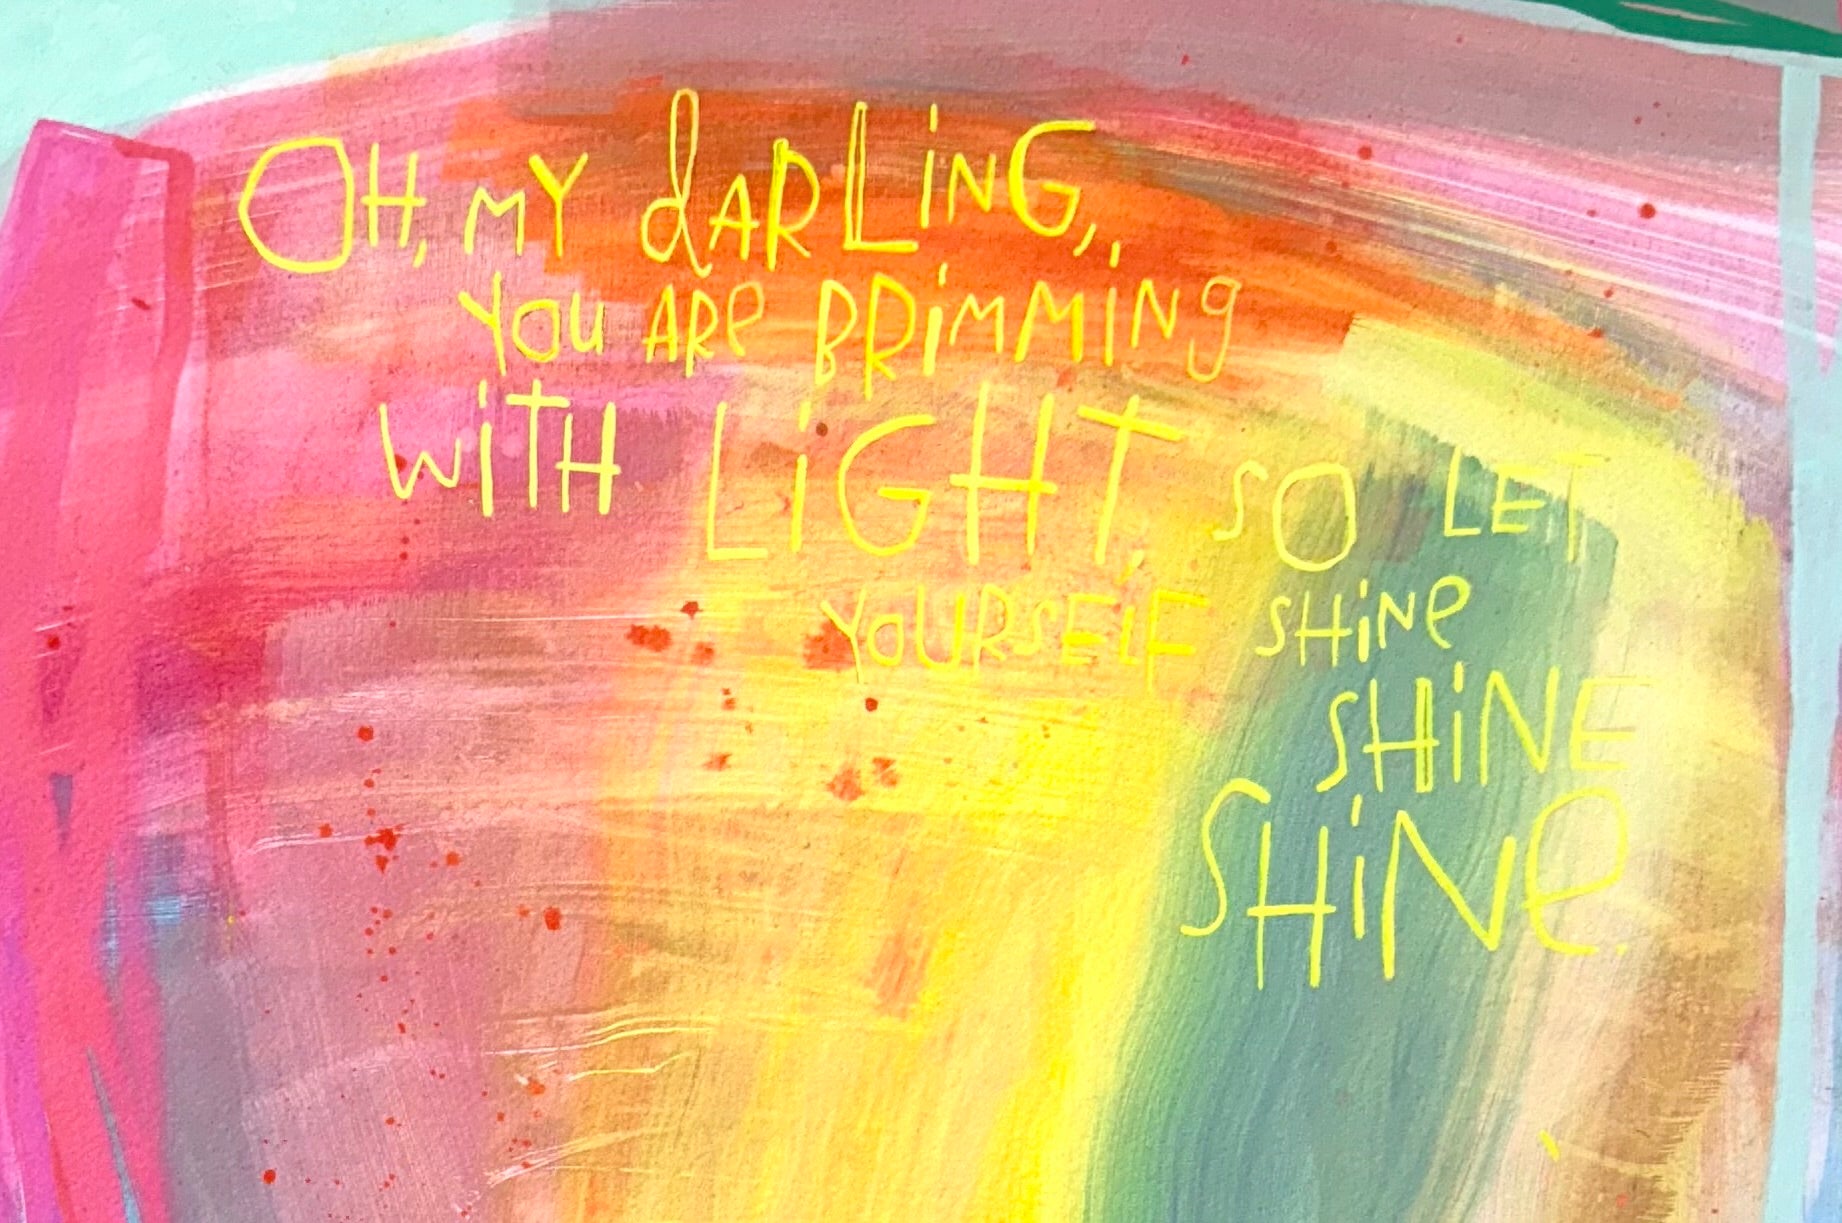 OH, MY dARLiNG,,
YOU ARe BRiMMiNg
WiTH LiGHT, SO LET
YOURSELF SHiNe
SHiNE
SHiNe.